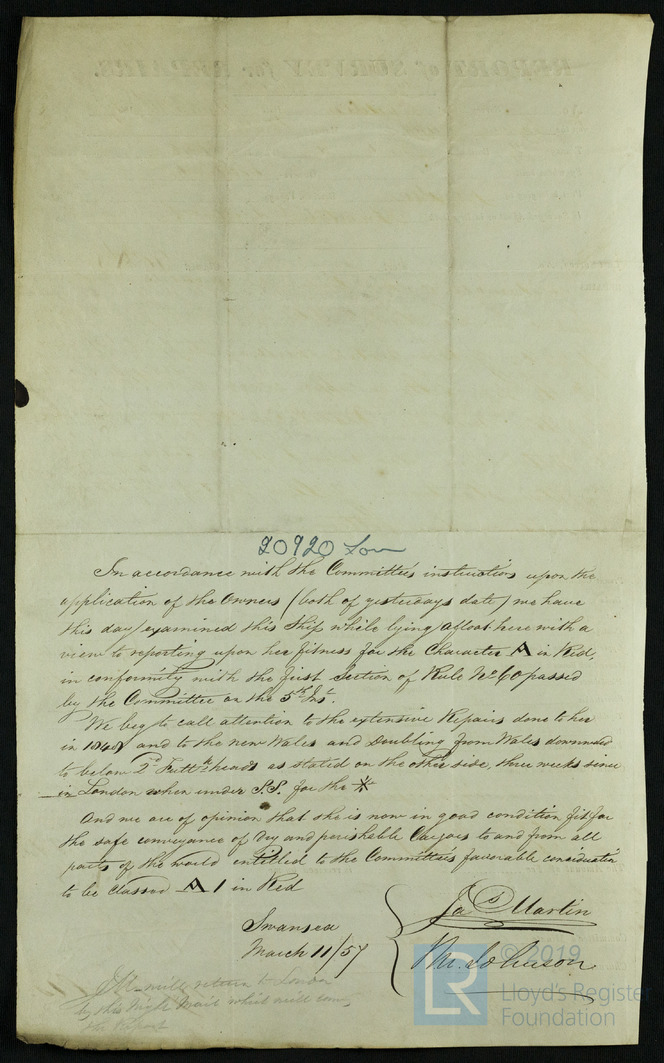 20920 Lon
In accordance with the Committee's instructions upon the
application of the Owners (both of yesterdays date) we have
this day examined this Ship while lying afloat here with a
view to reporting upon her fitness for the Character A in Red,
in conformity with the first Section of Rule No 60 passed
by the Committee on the 5th Inst.
We beg to call attention to the extensive Repairs done to her
in 1848 and to the new Wales and Doubling from Wales downwd
to below 2d Futtk heads as stated on the other side, three weeks since
in London when under S.S. for the *
And we are of opinion that she is now in good condition fit for
the safe conveyance of Dry and perishable Cargoes to and from all
parts of the world entitled to the Committee's favorable consideration
to be Classed A 1 in Red
Swansea
March 11/57
Jas Martin
Thos. Johnson
will return to London
by this night Mail which will
the Report
© 2019
LR
Lloyd's Register
Foundation